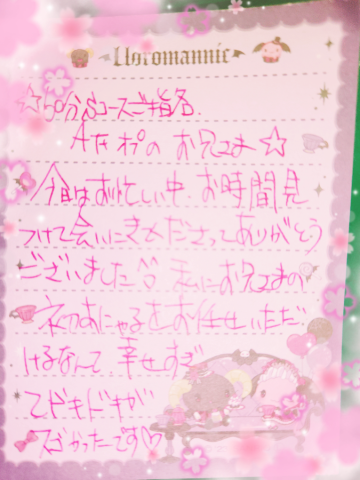 Lloromannic
☆60分Sコースご指名
Aなオプのお兄さま☆
今日はお忙しい中、お時間見
つけて会いにきてくださってありがとう
ございました 私にお兄さまの
初おにゃろをお任せいただ
けるなんて、幸せすぎ
てドキドキが
スゴかったです♡